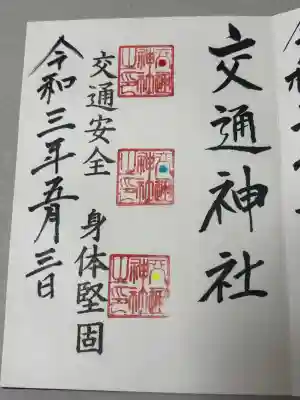 交通神社
交通安全 身体堅固
令和三年五月三日